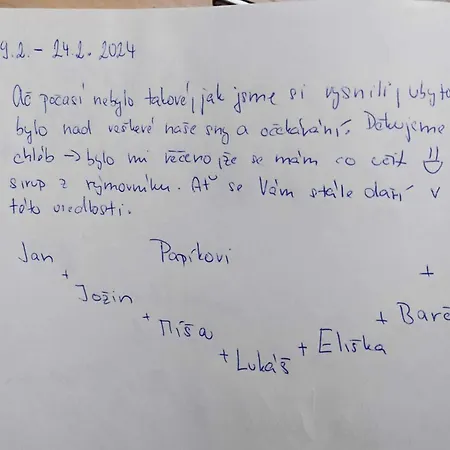 9.2. - 24.2. 2024
Ač počasí nebylo takové, jak jsme si vysnili, ubyto
bylo nad veškeré naše sny a očekávání. Děkujeme
chléb → bylo mi řečeno, že se mám co učit
sirup z rýmovníku. Ať se Vám stále daří v
této usedlosti.
Jan Papíkovi
+ Jožin
+ Míša
+ Lukáš
+ Eliška
+ Barč
+